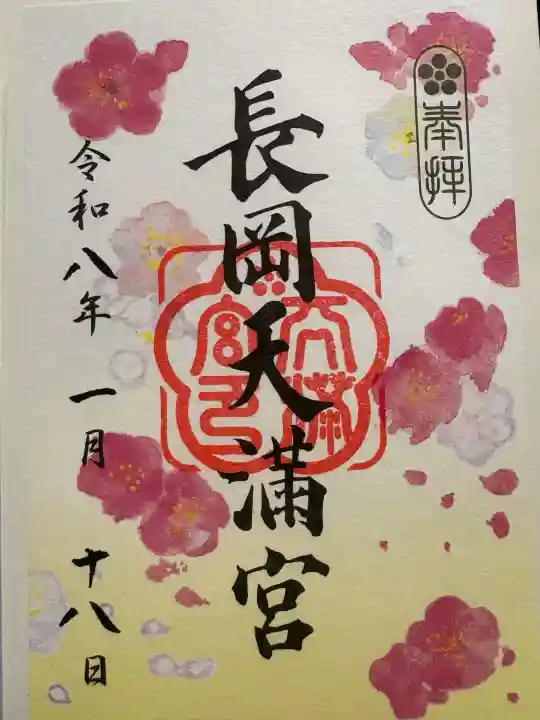 奉拝
長岡天満宮
天満宮印
令和八年 一月 十八日